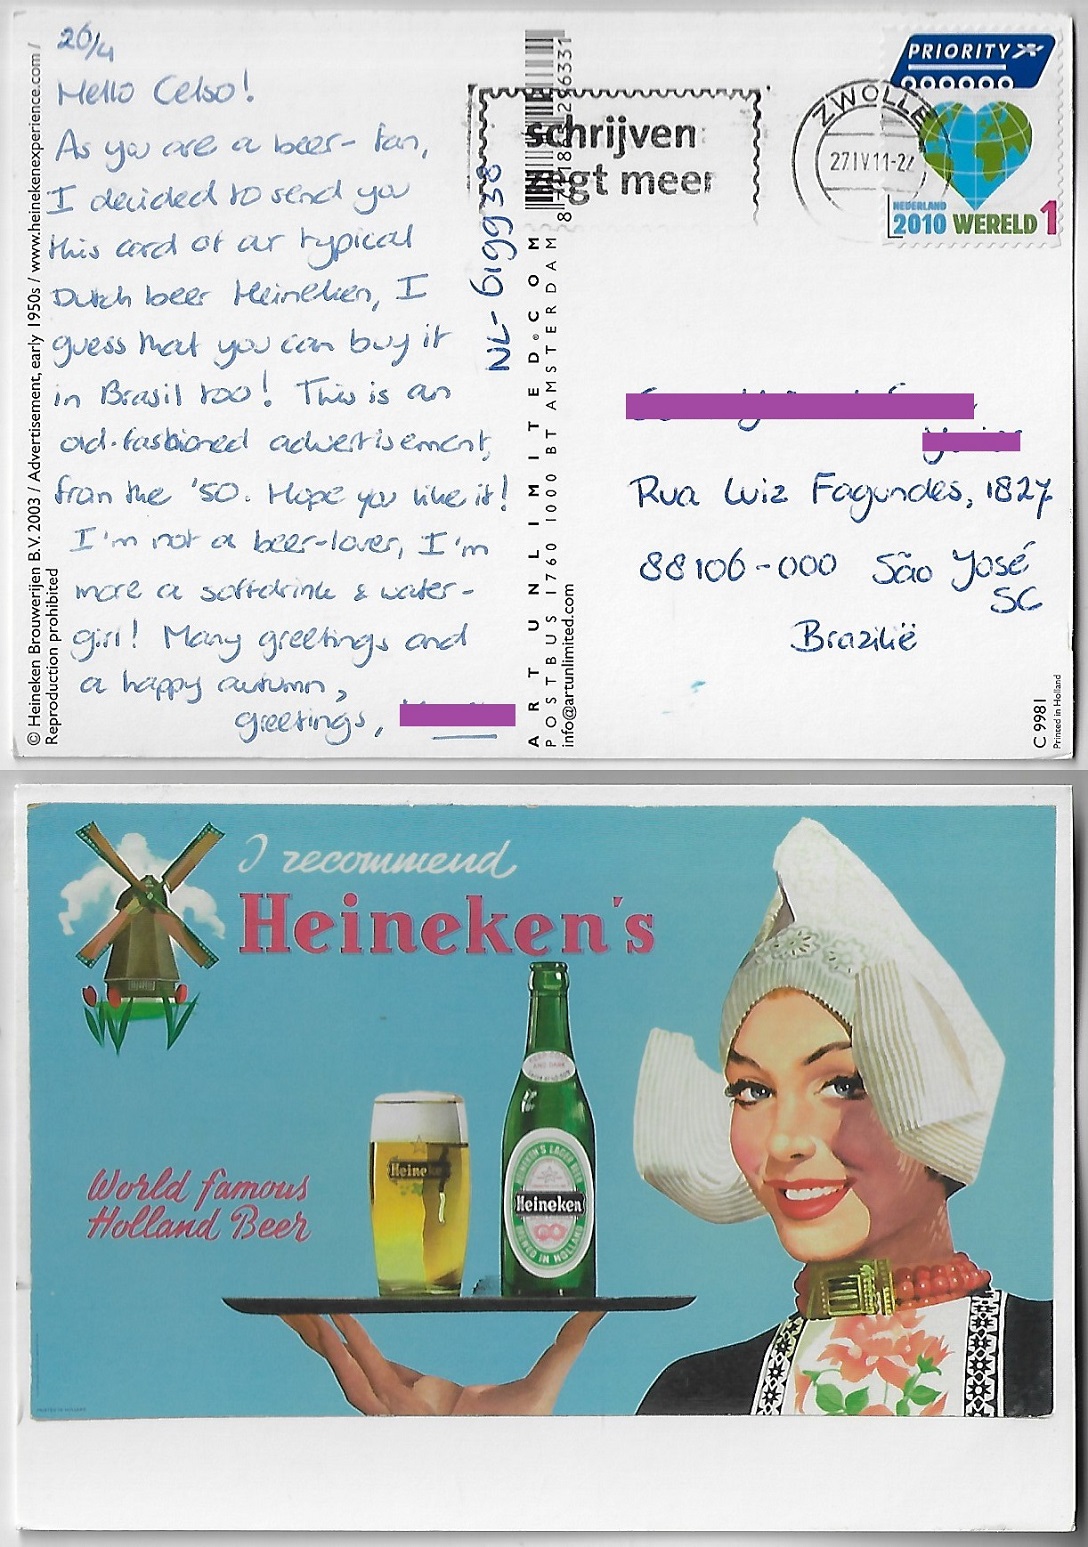 26/4
Hello Celso!
As you are a beer-fan,
I decided to send you
this card of our typical
Dutch beer Heineken, I
guess that you can buy it
in Brasil too! This is an
old-fashioned advertisement,
from the '50. Hope you like it!
I'm not a beer-lover, I'm
more a softdrink & water-
girl! Many greetings and
a happy autumn,
greetings,
© Heineken Brouwerijen B.V. 2003 / Advertisement, early 1950s / www.heinekenexperience.com /
Reproduction prohibited
NL-619938
ART UNLIMITED.COM
POSTBUS 1760 1000 BT AMSTERDAM
info@artunlimited.com
schrijven
gt meer
ZWOLLE
27.IV.11-2
PRIORITY
NEDERLAND
2010 WERELD 1
Rua Luiz Fagundes, 1827
88106-000 São José
SC
Brazilië
C 9981
Printed in Holland
I recommend
Heineken's
World famous
Holland Beer
Heineken
Heineken
BREWED IN HOLLAND